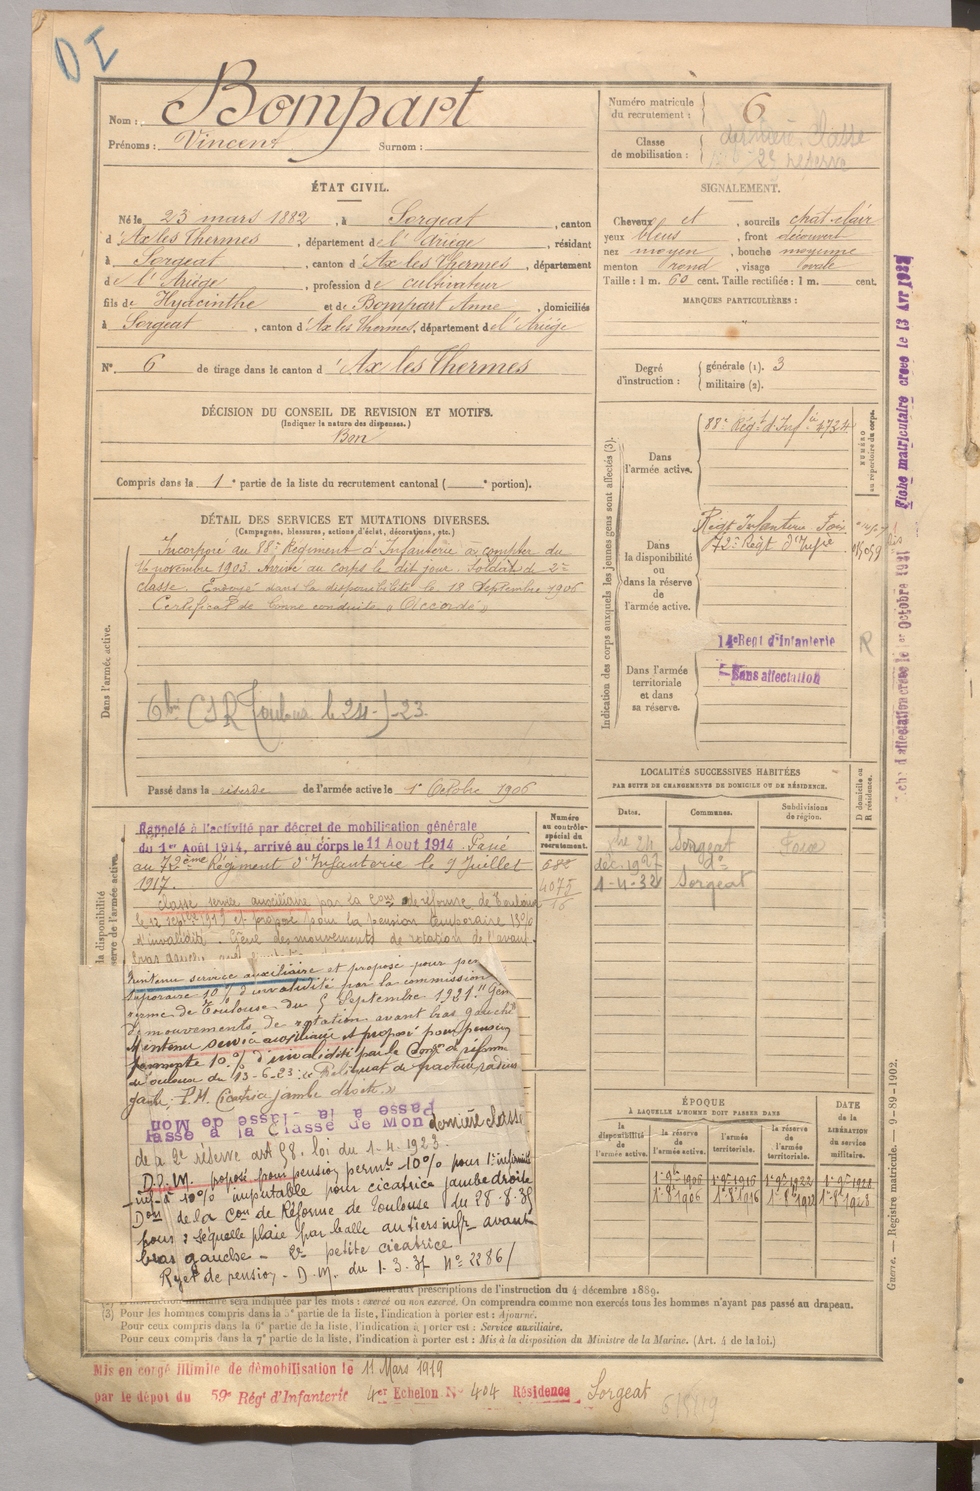 DI
Nom : Bompart
Prénoms : Vincent Surnom :
Numéro matricule
du recrutement : 6
Classe
de mobilisation : dernière classe
2e réserve
ÉTAT CIVIL.
Né le 23 mars 1882, à Sorgeat, canton
d'Ax les Thermes, département de l'Ariége, résidant
à Sorgeat, canton d'Ax les Thermes, département
de l'Ariége, profession de cultivateur
fils de Hyacinthe et de Bompart Anne, domiciliés
à Sorgeat, canton d'Ax les Thermes, département de l'Ariége
N° 6 de tirage dans le canton d'Ax les Thermes
SIGNALEMENT.
Cheveux et, sourcils chat-clair
yeux bleus, front découvert
nez moyen, bouche moyenne
menton rond, visage ovale
Taille : 1 m. 60 cent. Taille rectifiée : 1 m. cent.
MARQUES PARTICULIÈRES :
"
Degré
d'instruction :
générale (1). 3
militaire (2).
DÉCISION DU CONSEIL DE REVISION ET MOTIFS.
(Indiquer la nature des dispenses.)
Bon
Compris dans la 1e partie de la liste du recrutement cantonal ( e portion).
DÉTAIL DES SERVICES ET MUTATIONS DIVERSES.
(Campagnes, blessures, actions d'éclat, décorations, etc.)
Dans l'armée active.
Incorporé au 88e Régiment d'Infanterie à compter du
16 novembre 1903. Arrivé au corps le dit jour. Soldat de 2e
classe. Envoyé dans la disponibilité le 18 Septembre 1906
Certificat de bonne conduite « Accordé »
Passé dans la réserve de l'armée active le 1er Octobre 1906
Indication des corps auxquels les jeunes gens sont affectés (3).
NUMÉRO
au répertoire du corps.
Dans
l'armée active.
88e Régt d'Infie 4724
Dans
la disponibilité
ou
dans la réserve
de
l'armée active.
Régt Infanterie Foix
72e Régt d'Infie
Dans l'armée
territoriale
et dans
sa réserve.
14e Régt d'Infanterie
Sans affectation
R
Fiche matriculaire créée le 13 Avr
d'affectation créée le 1er Octobre 1931
LOCALITÉS SUCCESSIVES HABITÉES
PAR SUITE DE CHANGEMENTS DE DOMICILE OU DE RÉSIDENCE.
D domicile ou
R résidence.
Dates. Communes. Subdivisions
de région.
24 Sorgeat Foix
déc. 1927 do
1-4-32 Sorgeat
la disponibilité
serve de l'armée active.
Numéro
au contrôle
spécial du
recrutement.
Rappelé à l'activité par décret de mobilisation générale
du 1er Août 1914, arrivé au corps le 11 Aout 1914. Passé
au 72ème Régiment d'Infanterie le 9 Juillet
1917.
Classé service auxiliaire par la Con de réforme de Toulouse
et proposé pour la pension temporaire 10%
d'invalidité. Gêne des mouvements de rotation de l'avant
bras gauche
4075
Maintenu service auxiliaire et proposé pour pen
temporaire 10% d'invalidité par la commission
réforme de Toulouse du 5 Septembre 1921. "Gên
mouvements de rotation avant bras gauche
Maintenu service auxiliaire et proposé pour pension
permnte 10% d'invalidité par la Con de réforme
de Toulouse du 13-6-23 : « Reliquat de fracture radius
gauche. P.M. Cicatrice jambe droite. »
Passe à la Classe de Mon
Passe à la Classe de Mon dernière classe
de la 2e réserve art 58. loi du 1-4-1923.
D.P.M. proposé pour pension permte -10% pour 1e infirmité
inf. à 10% imputable pour cicatrice jambe droite
Don de la Con de Réforme de Toulouse du 28-8-35
pour : Séquelle plaie par balle au tiers infr avant
bras gauche - 2° petite cicatrice
Rejet de pension - D.M. du 1-3-37 N° 2286/
ÉPOQUE
À LAQUELLE L'HOMME DOIT PASSER DANS
DATE
de la
LIBÉRATION
du service
militaire.
la
disponibilité
de
l'armée active.
la réserve
de
l'armée active.
l'armée
territoriale.
la réserve
de
l'armée
territoriale.
1er 8bre 1906 1er 8bre 1916
Guerre. — Registre matricule. — 9-89-1902.
aux prescriptions de l'instruction du 4 décembre 1889.
militaire sera indiquée par les mots : exercé ou non exercé. On comprendra comme non exercés tous les hommes n'ayant pas passé au drapeau.
(3) Pour les hommes compris dans la 5e partie de la liste, l'indication à porter est : Ajourné.
Pour ceux compris dans la 6e partie de la liste, l'indication à porter est : Service auxiliaire.
Pour ceux compris dans la 7e partie de la liste, l'indication à porter est : Mis à la disposition du Ministre de la Marine. (Art. 4 de la loi.)
Mis en congé illimité de démobilisation le 11 Mars 1919
par le dépôt du 59e Régt d'Infanterie 4er Echelon N° 404 Résidence Sorgeat